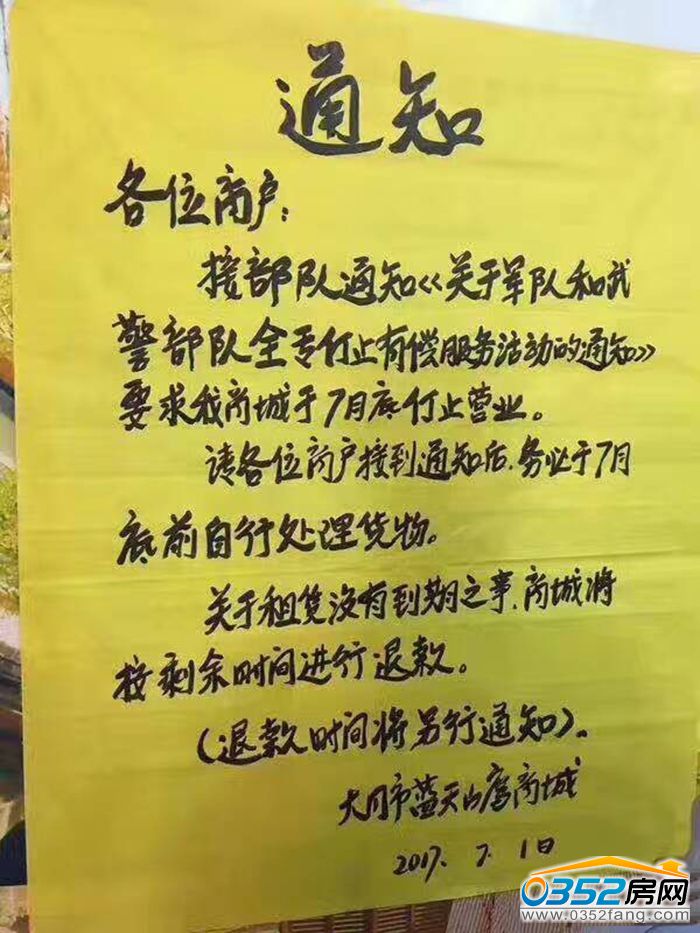 通知
各位商户：
接部队通知《关于军队和武
警部队全面停止有偿服务活动的通知》
要求我商城于7月底停止营业。
请各位商户接到通知后，务必于7月
底前自行处理货物。
关于租赁没有到期之事，商城将
按剩余时间进行退款。
（退款时间将另行通知）。
大同市蓝天山鹰商城
2017.7.1日
0352房网
www.0352fang.com